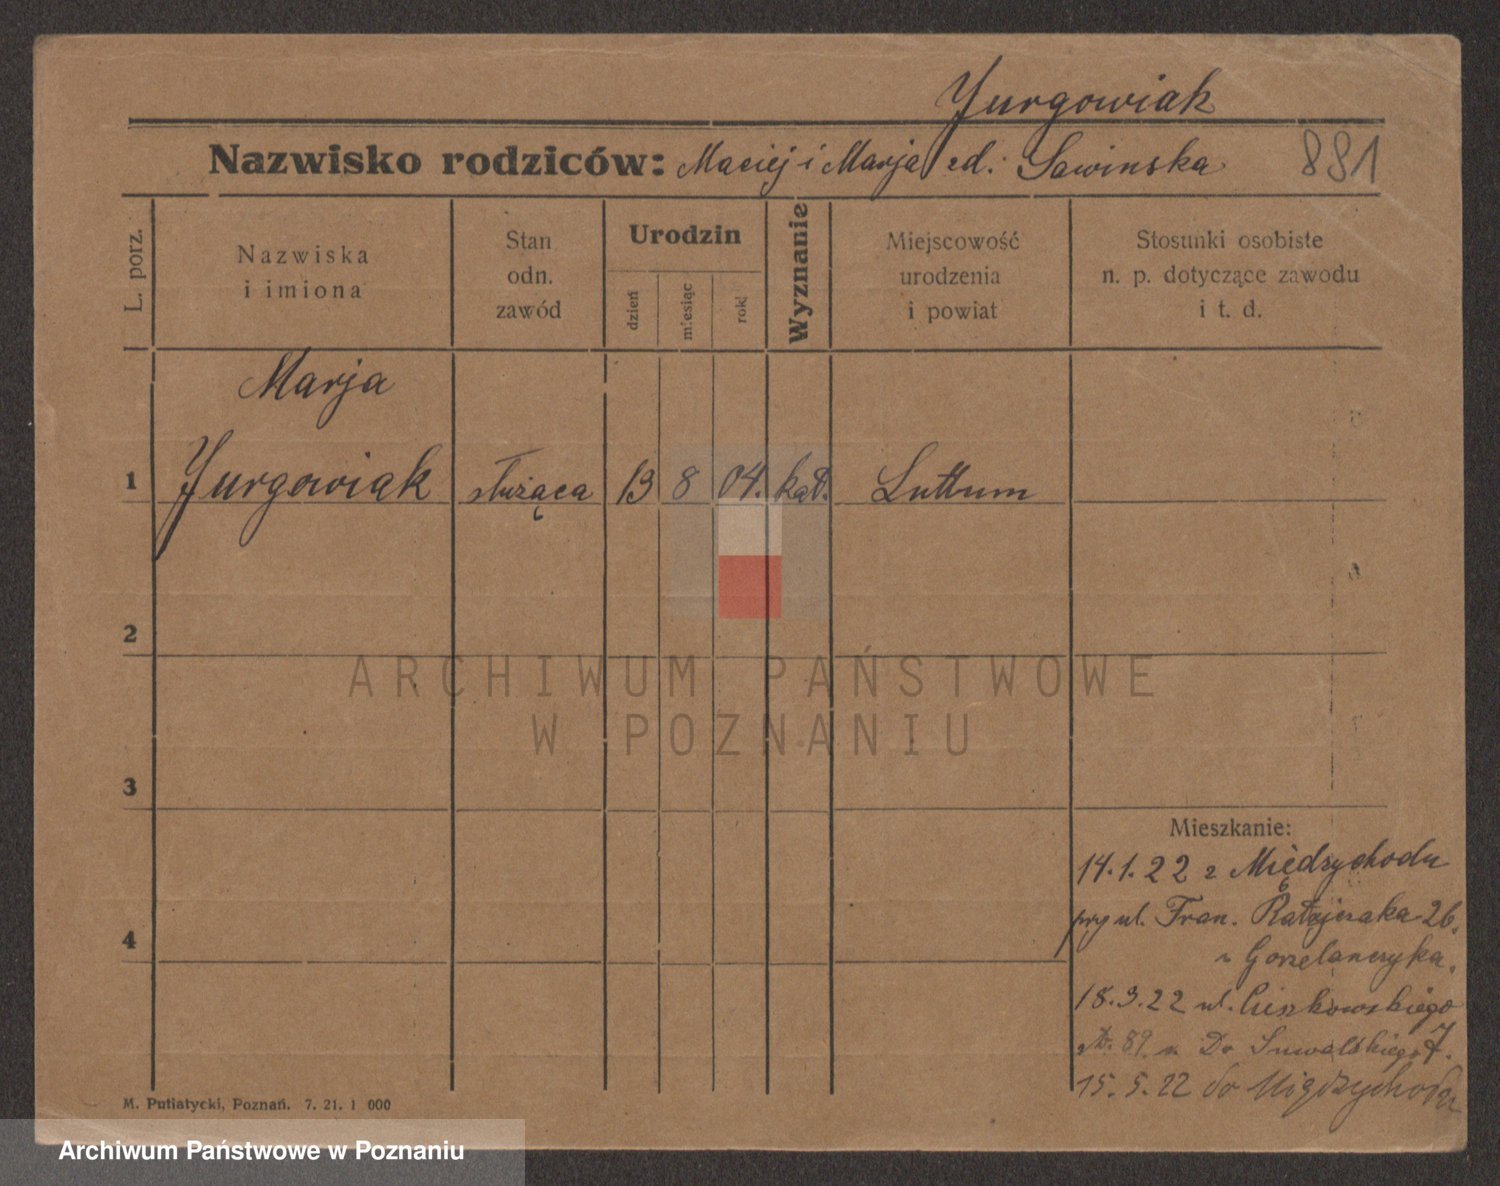 Jurgowiak
Nazwisko rodziców: Maciej i Marja Sawinska
881
L. porz.
Nazwiska
i imiona
Stan
odn.
zawód
Urodzin
dzień
miesiąc
rok
Wyznanie
Miejscowość
urodzenia
i powiat
Stosunki osobiste
n. p. dotyczące zawodu
i t. d.
Marja
1 Jurgowiak służąca 13 8 04. kat. Luttum
2
ARCHIWUM PAŃSTWOWE
W POZNANIU
3
Mieszkanie:
14.1.22 z Międzychodu
przy ul. Fran. Ratajczaka 26.
u Gorzelańczyka.
18.3.22 ul. Cieszkowskiego 7
u Dr Suwalskiego
15.5.22 do Międzychodu
4
M. Putiatycki, Poznań. 7. 21. 1 000
Archiwum Państwowe w Poznaniu